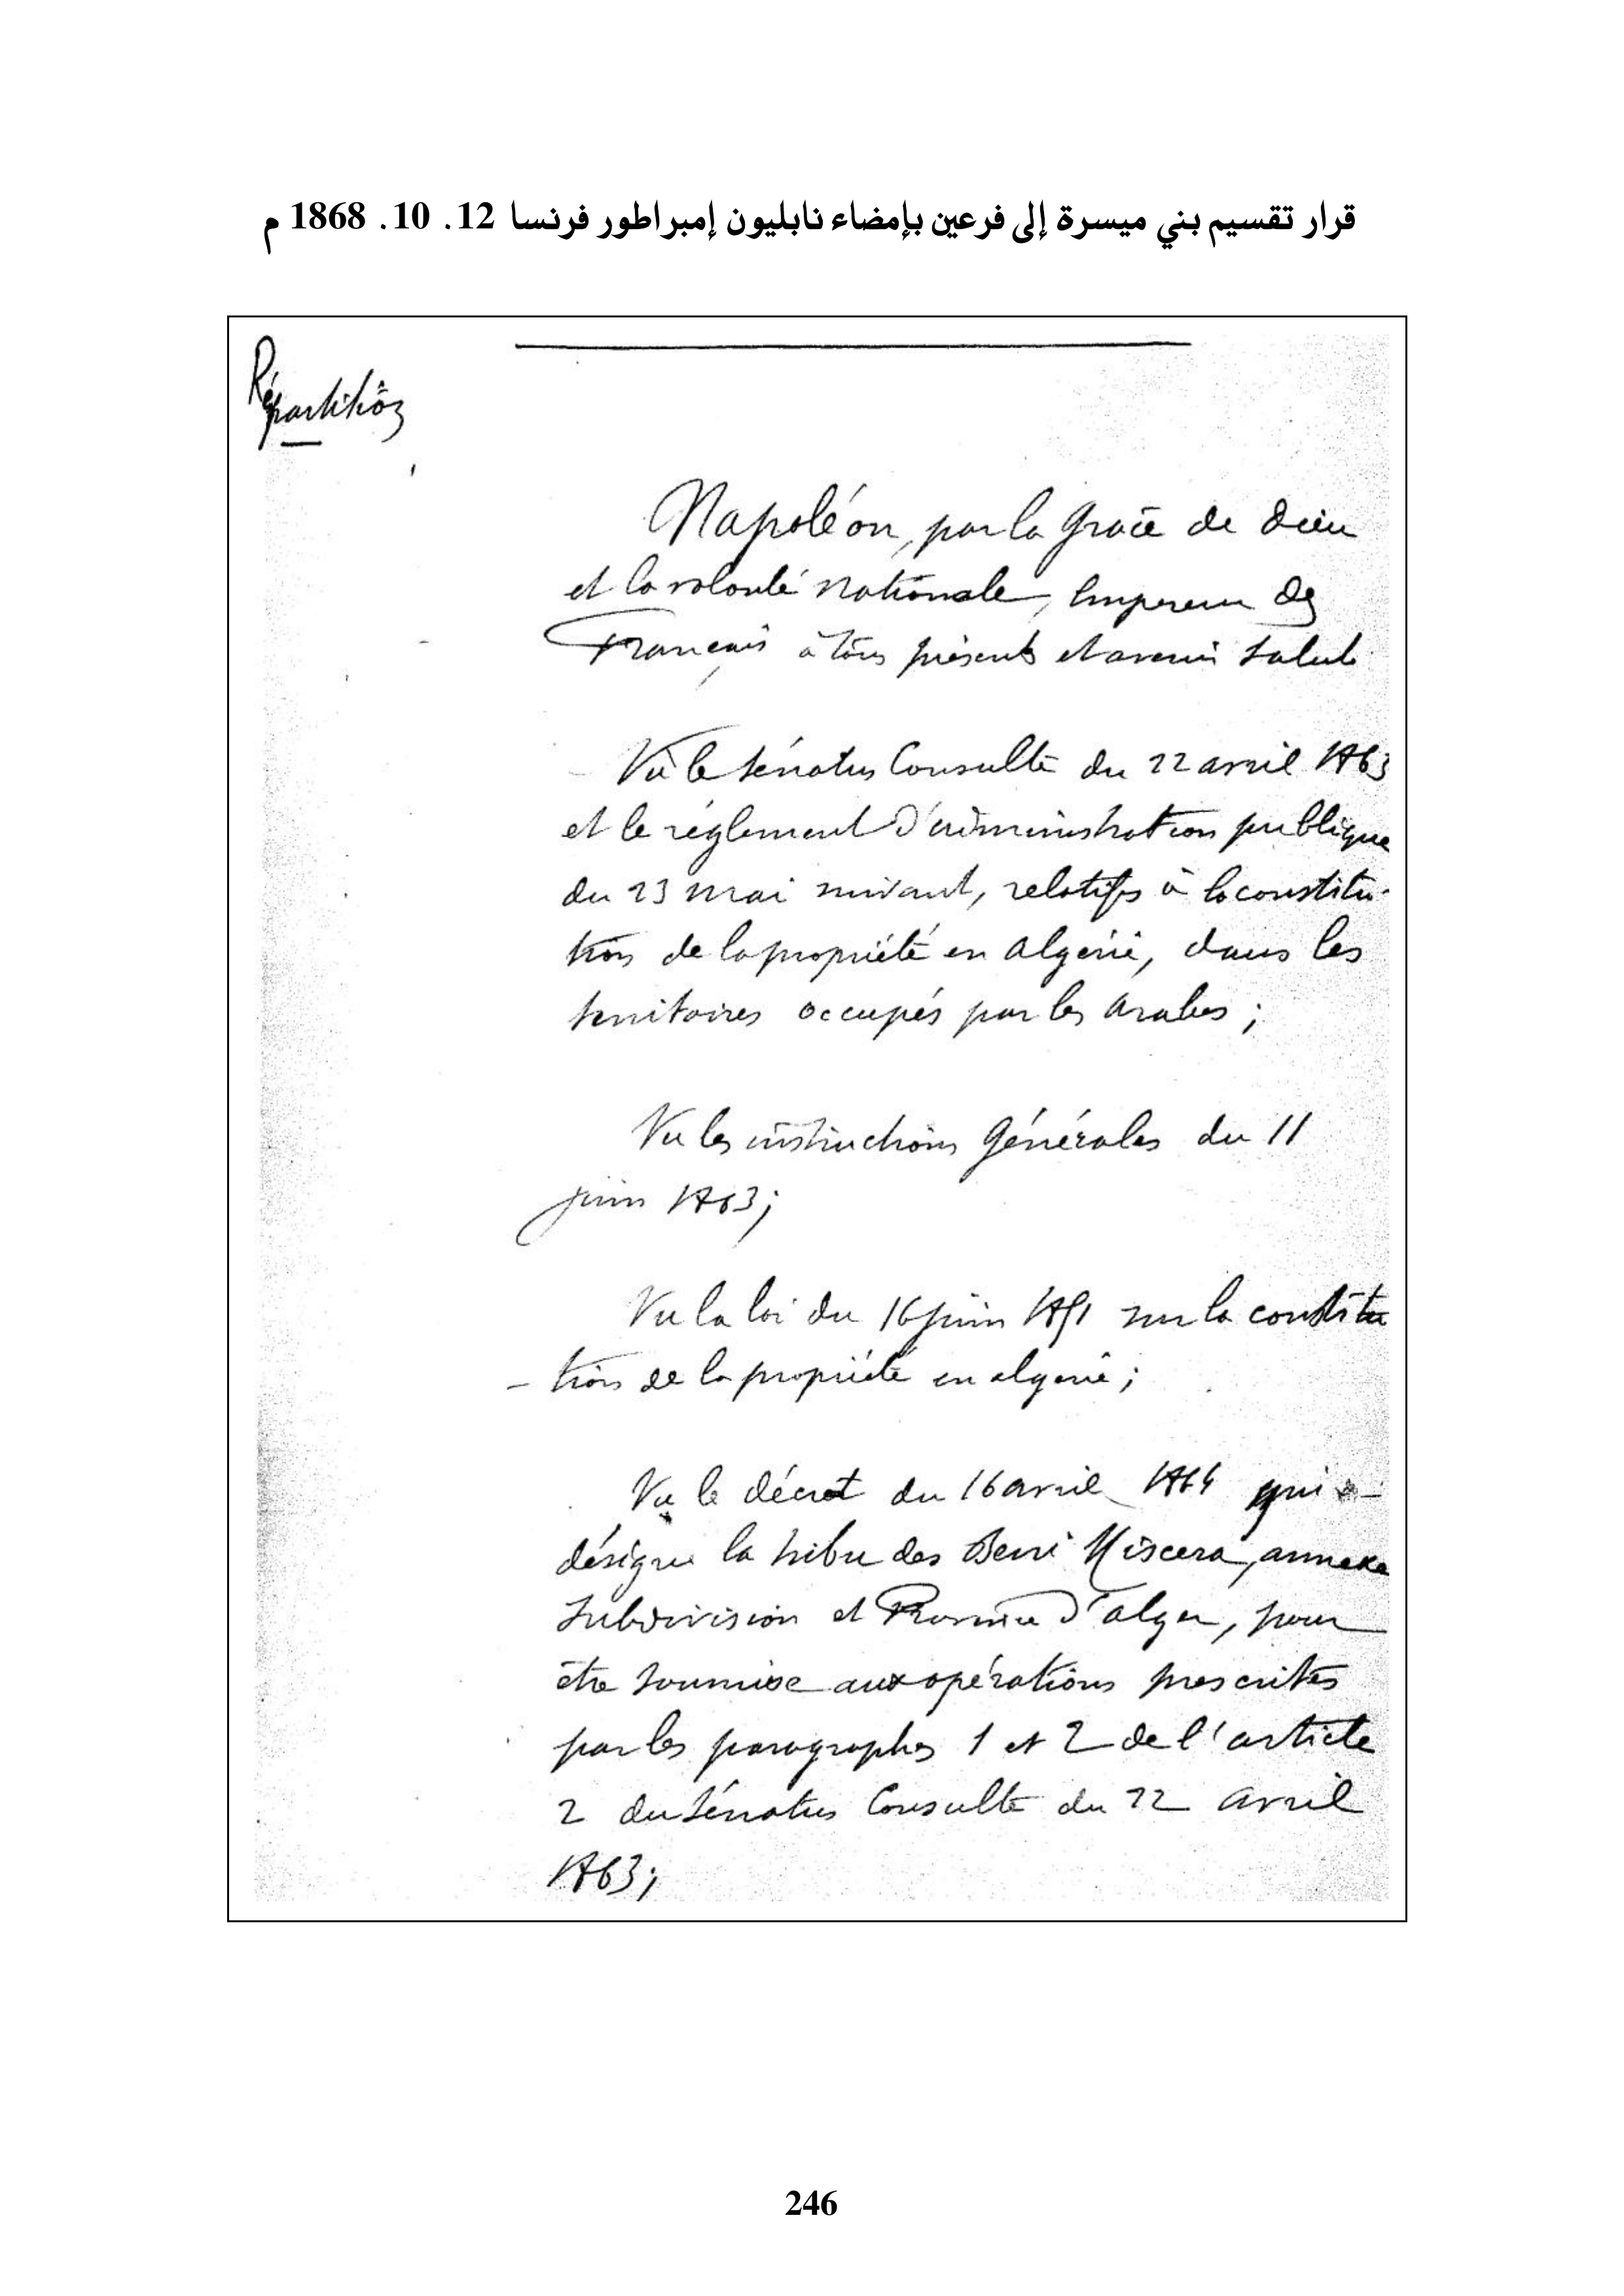 قرار تقسيم بني ميسرة إلى فرعين بإمضاء نابليون إمبراطور فرنسا 12 .10 .1868 م
Répartition
Napoléon, par la Grace de Dieu
et la volonté Nationale, Empereur des
Français à tous présents et avenir Salut
Vu le Sénatus Consulte du 22 avril 1863
et le règlement d'administration publique
du 23 mai suivant, relatifs à la constitu-
tion de la propriété en Algérie, dans les
territoires occupés par les Arabes ;
Vu les instructions Générales du 11
juin 1863;
Vu la loi du 16 juin 1851 sur la constitu
- tion de la propriété en algérie ;
Vu le décret du 16 avril 1864 qui a
désigné la tribu des Beni Miscera, annexe
Subdivision et Province d'alger, pour
être soumise aux opérations prescrites
par les paragraphes 1 et 2 de l'article
2 du Sénatus Consulte du 22 avril
1863;
246